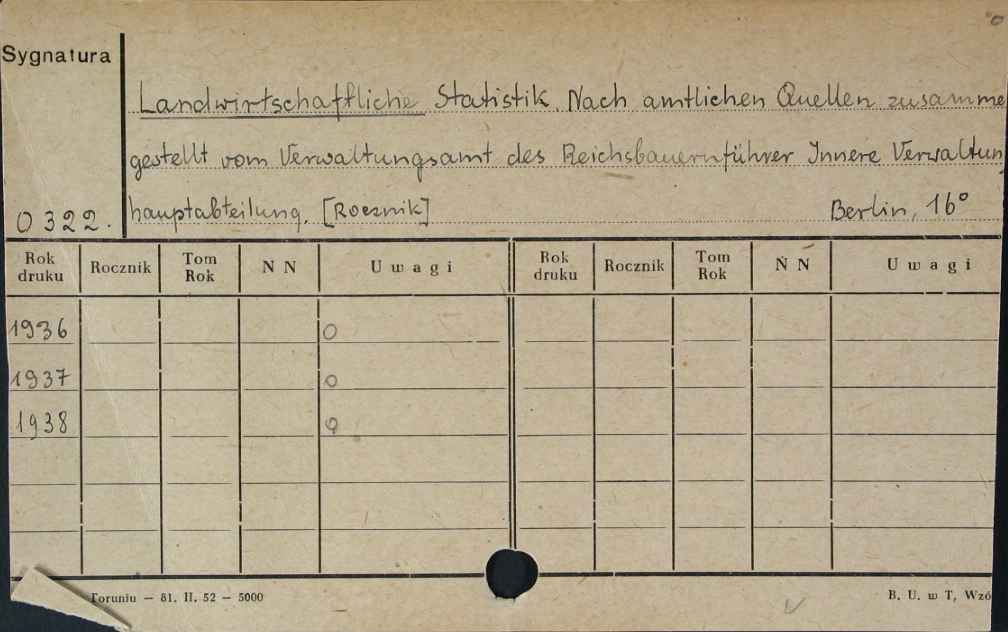 Sygnatura
Landwirtschaftliche Statistik. Nach amtlichen Quellen zusamme
gestellt vom Verwaltungsamt des Reichsbauernführer Innere Verwaltun
O 322. hauptabteilung. [Rocznik] Berlin, 16°
Rok druku Rocznik Tom Rok N N Uwagi Rok druku Rocznik Tom Rok N N Uwagi
1936 O
1937 O
1938 O
Toruniu — 81. II. 52 — 5000 B. U. w T, Wzó